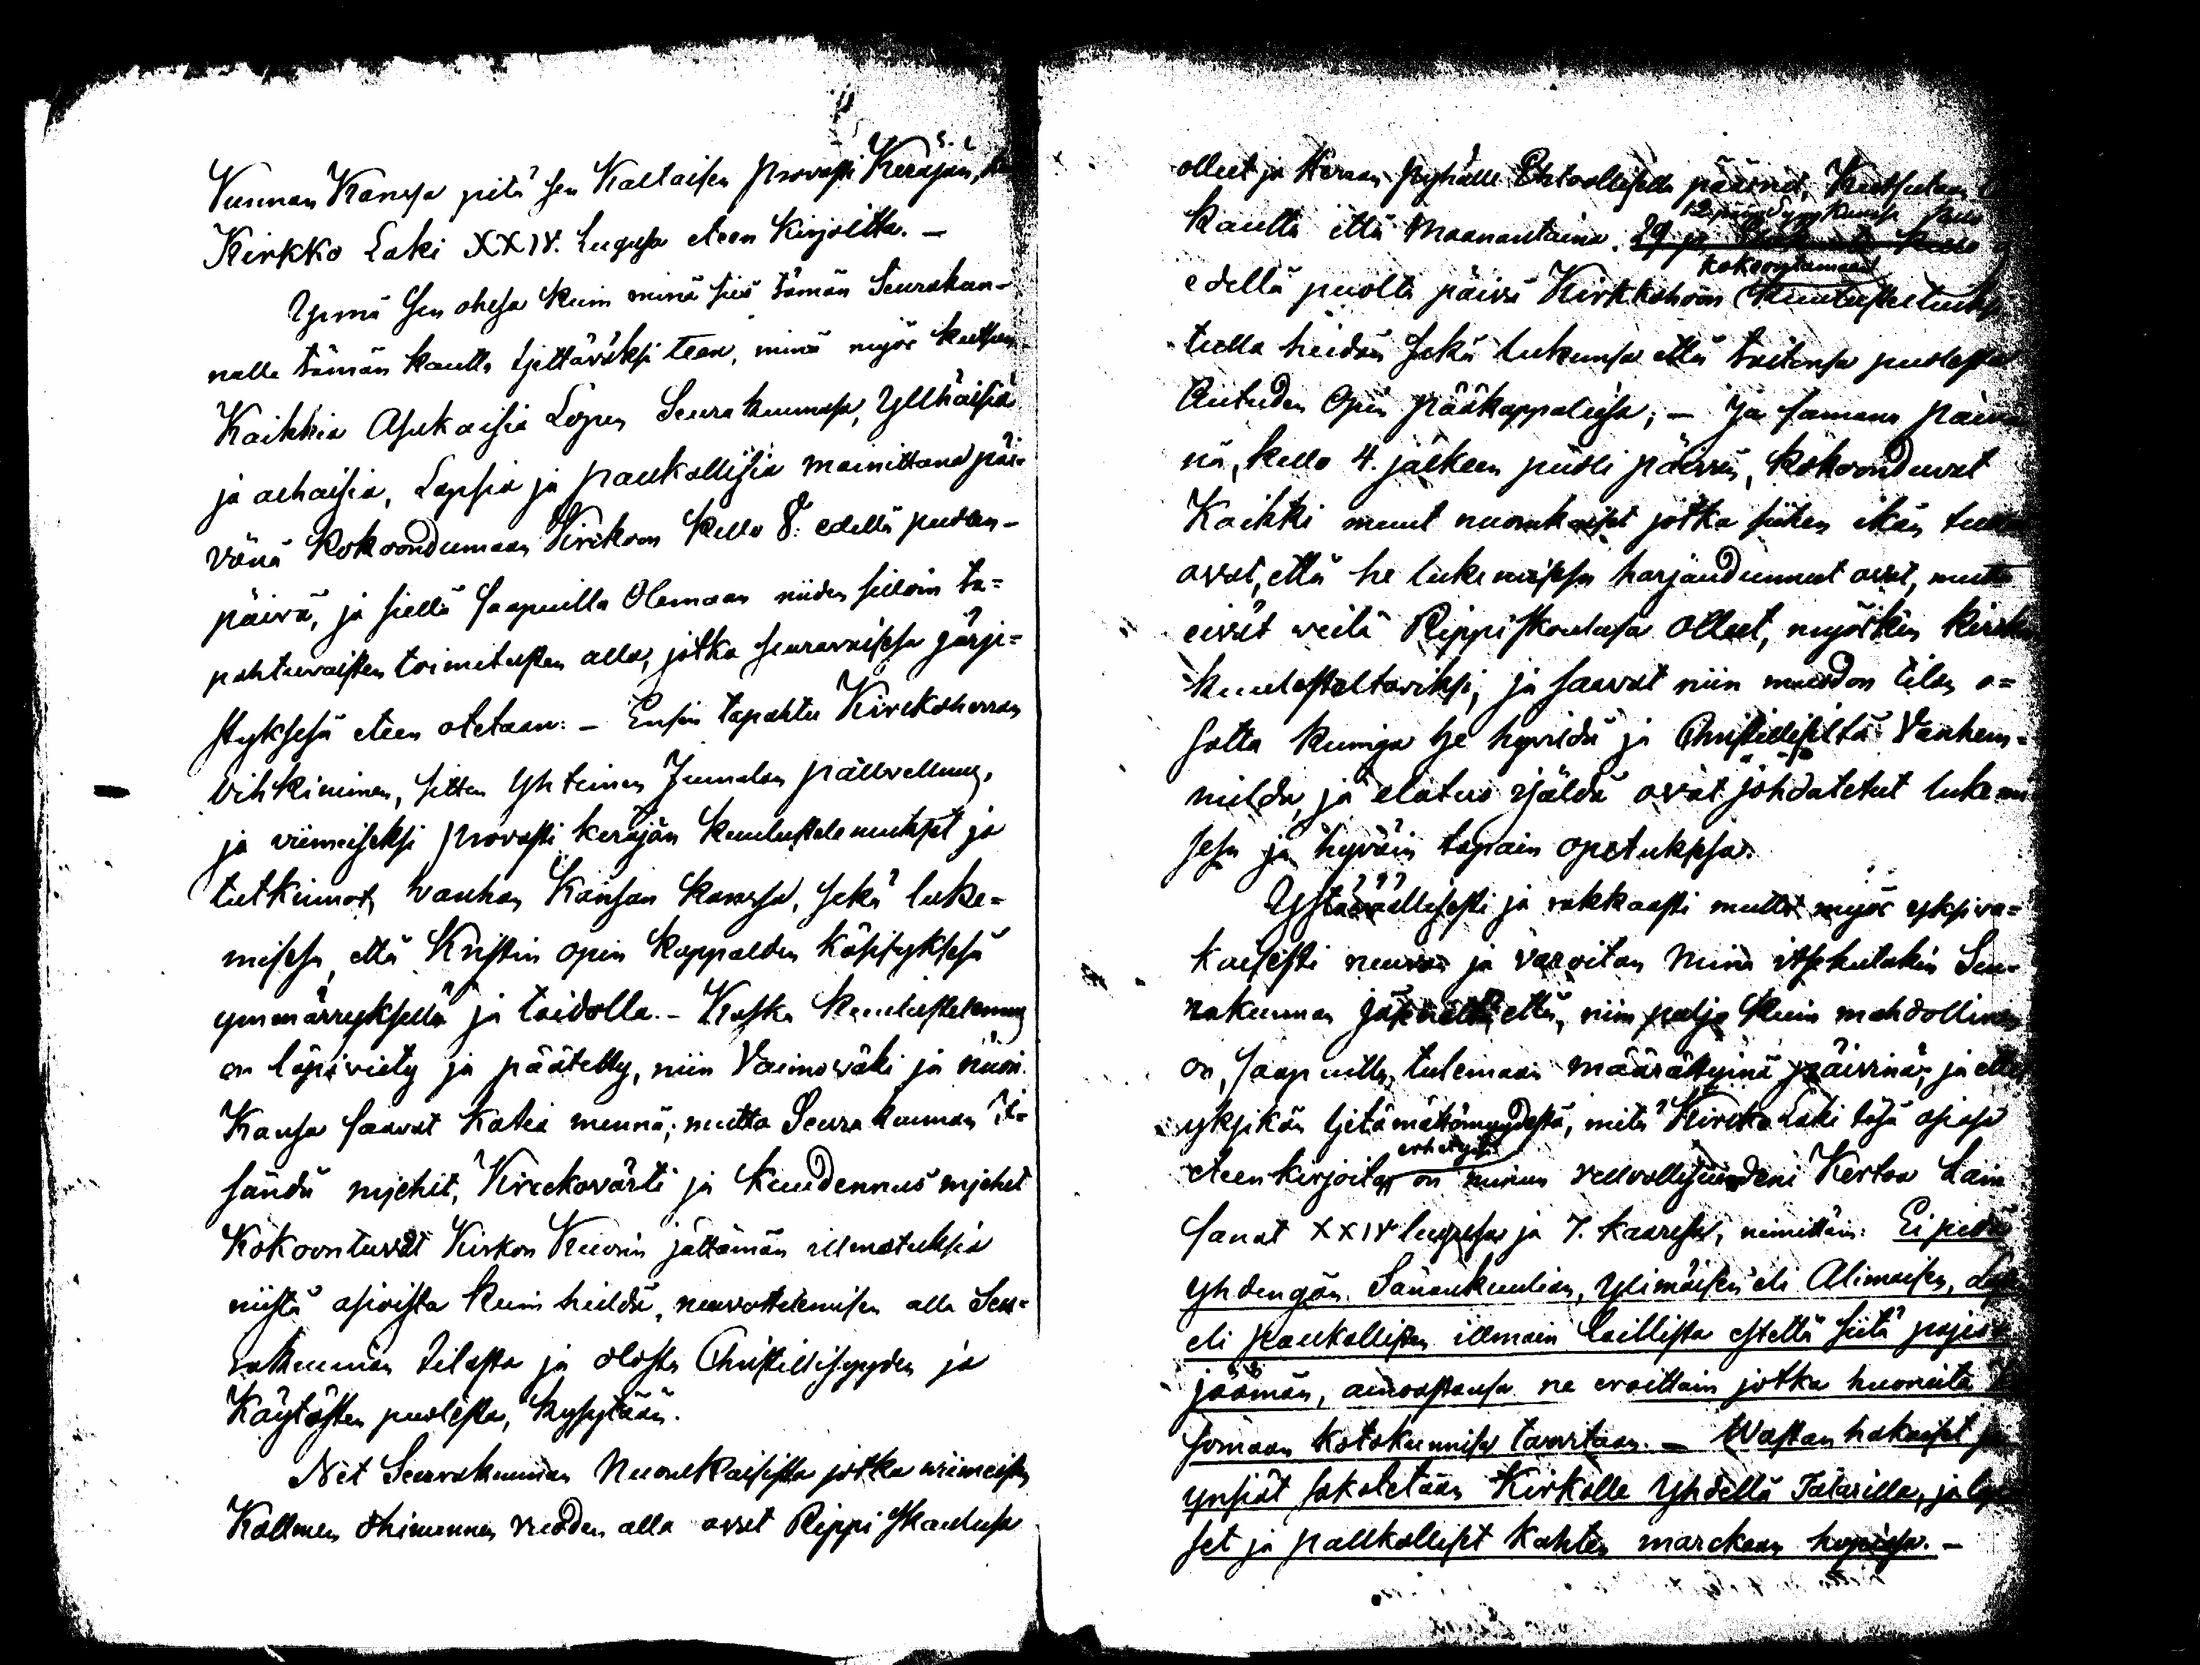 Kunnan Kanssa pitä sen Kaltaisen Provasti Keräjän,
Kirkko Laki XXIV. Lugusa eteen Kirjoitta. —
Ynnä sen ohesa kuin minä sen tämän Seurakun-
nalle tämän kautta tjettäväksi teen, minä myös kutsun
Kaikkia Asukaisia Lopen Seurakunnasa, Ylhäisiä
ja alhaisia, Lapsia ja palkollisia mainittana päi-
vänä Kokoondumaan Kirckoon kello 8. edellä puolen-
päivä, ja siellä saapuilla Olemaan niiden silloin ta=
pahtuvaisten toimitusten alla, jotka seuravaisssa järje=
styksesä eteen otetaan: — Ensin tapahtu Kirckoherran
Vihkiminen, sitten Yhteinen Jumalan pallvellung,
ja viimeiseksi Provasti keräjän kuulustelemukset ja
tutkinnot, vanhan Kansan kanssa, sekä luke=
misessa, että Kristin opin kappalden käsityksesä
ymmärryksellä ja taidolla. — Koska kuulustelemus
on läpivioty ja päätetty, niin Vaimowäki ja nuori
Kansa saavat Kotia mennä; mutta Seurakunnan I=
sändä mjehit, Kirckovärti ja Kuudennus mjehet
Kokoontuvat Kirkon Kuorin jättämän ilmotuksia
niistä asioista kuin heildä, neuvottelemisen alla Seu=
rakunnan tilasta ja olosta Christillisyyden ja
Käytösten puolesta, kysytään.
Net Seurakunnan Nuorukaisista jotka viimeisen
Kollmen ohimennen vuoden alla ovat Rippi Skoulusa
olleet ja Herran pyhälle Ehtoolliselle pääsnet, Kutsutaan
12 päivä Kuusa
kautta että Maanantaina 29 kello
kokoontamaan
edellä puolta päivä Kirkkohoon kuulusteltuksi
tulla heidän sekä lukunsa että taitonsa puolesta
Autuden Opin pääkappaleisa; — ja samana päivä
nä, kello 4. jälkeen puoli päivän, kokoonduvat
Kaikki muut nuorukaiset jotka siihen ikän tullet
ovat, että he lukemissa harjaundunnet ovat, mutta
eivät vielä Rippi Skoulusa olleet, myöskin kircko
kuulusteltaviksi, ja saavat niin muodon tilan o=
sotta kuinga he hyvildä ja Christillisiltä Vanhem=
milda, ja elatus isäldä ovat johdatetut lukemi
sesa ja hyväin tapain opetuksisa.
Ystävällisesti ja rakkaasti mutta myös yksiva=
kaisesti neuvon ja varoitan Minä itsekutakin Seu-
rakunnan jäsenettä että, niin paljo kuin mahdollinen
on, saapuilla, tulemaan määrättynä päivinä; ja ettei
yksikän tjetämättömyydestä, mitä Kircko Laki täsä asiasa
erhetysi
eteen kirjoitap on minun velvollisuudeni Kertoa Lain
sanat XXIV lugusa ja 7. kaaresa, nimittäin: Ei pidä
yhdengän Sanankuulian, Ylimäisen eli Alimaisen, Lapsen
eli palkollisen ilman laillista estettä siitä pojess
jäämän, ainoastansa ne eroittain jotka huoneita
somaan kotokunnisa tarvitaan. — Wastan hakoiset ja
ynsiät sakotetaan Kirkolle Yhdellä Talarilla, ja lap
set ja pallkolliset kahten marckaan hopiasa. —